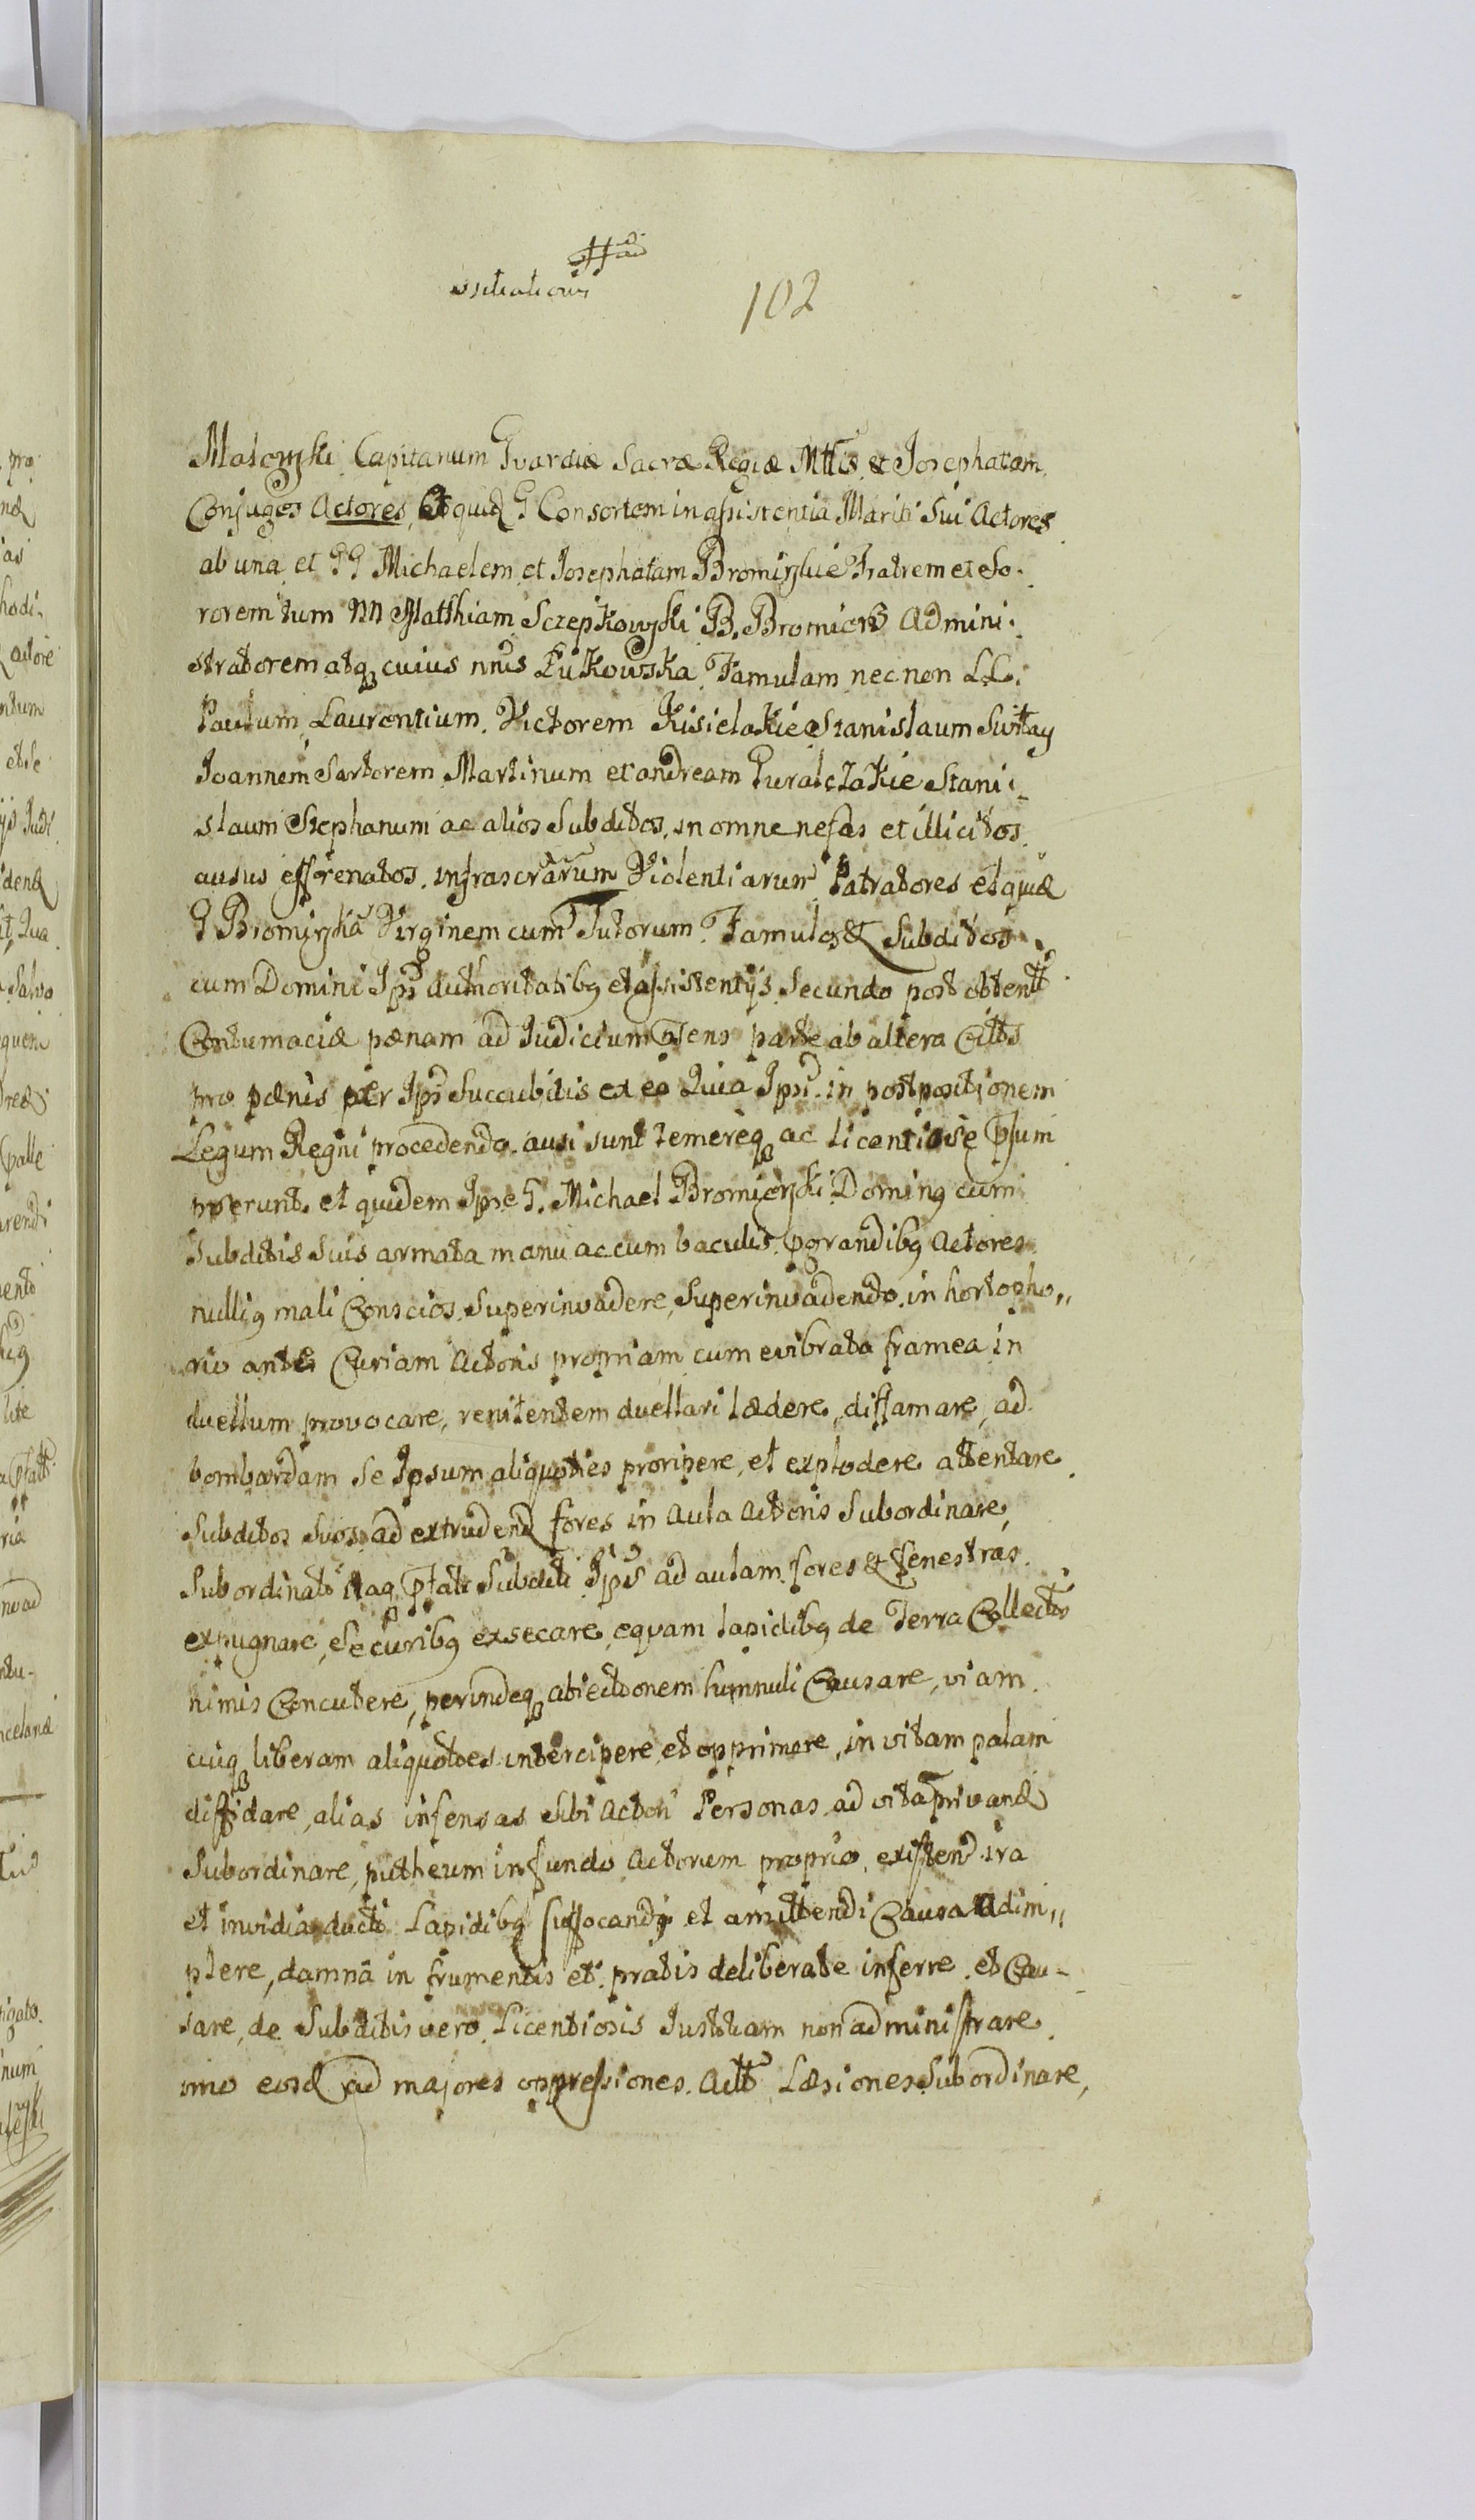 102
Malczyski Capitanum Gvardiæ Sacræ Regiæ Mttis et Josephatam
Conjuges Actores, Eosquid G Consortem in assistentia Mariti Sui Actores
ab una et GG Michaelem et Josephatam Bromirskie Fratrem et So.
rorem tum NN Matthiam Sczepkowski B. Admini.
stratorem atq cuius nnis Łukowska Famulam nec non LL.
Paulum Laurentium Victorem Kisielakie Stanislaum
Joannem Sartorem Martinum et andream Guralczakie Stani.
slaum Stephanum ac alios Subditos in omne nefas et illicitos
ausus effrenatos infrascrarum Violentiarum Patratores et quæ
G Bromirska Virginem cum Tutorum Famulos & Subditos
cum Domini Ipś authoritatibq et assistentijs Secundo post obtentt
Contumaciæ pænam ad Judicium pars parte ab altera Citts
pro pænis per Ips Succubitis ex eo Quia Ipsi in postpositionem
Legum Regni procedendo ausi sunt temereq ac licentiose psum
pserunt et quidem Ipse G. Michael Bromierski Dominq cum
Subditis Suis armata manu ac cum baculis pgrandibq Actores
nulliq mali Conscios Superinvadere, Superinvadendo in hortopho,,
rio ante Curiam Actoris propriam cum evibrata framea in
duellum provocare, renitentem duellari lædere, diffamare, ad
bombardam Se Ipsum aliquoties proripere, et explodere attentare
Subditos Suos ad extrudend fores in Aula Actoris Subordinare,
Subordinati itaq ptati Subditi Ips ad aulam fores & fenestras
expugnare, Securibq exsecare, equam lapidibq de Terra Collectis
nimis Concutere, perindeq abiectionem hinnuli Causare, viam
cuiq liberam aliquoties intercipere et opprimere, in vitam palam
diffidare, alias infensas Sibi Actori Personas ad vita privand
Subordinare, putheum in fundo Actorum proprio existen ira
et invidia ducti Lapidibq suffocandi et amittendi Causa Adim,,
plere, damna in frumentis et pratis deliberate inferre et Cau-
sare, de Subditis vero Licentiosis Justitiam non administrare
imo eosd ad majores oppressiones Actt Læsiones Subordinare,